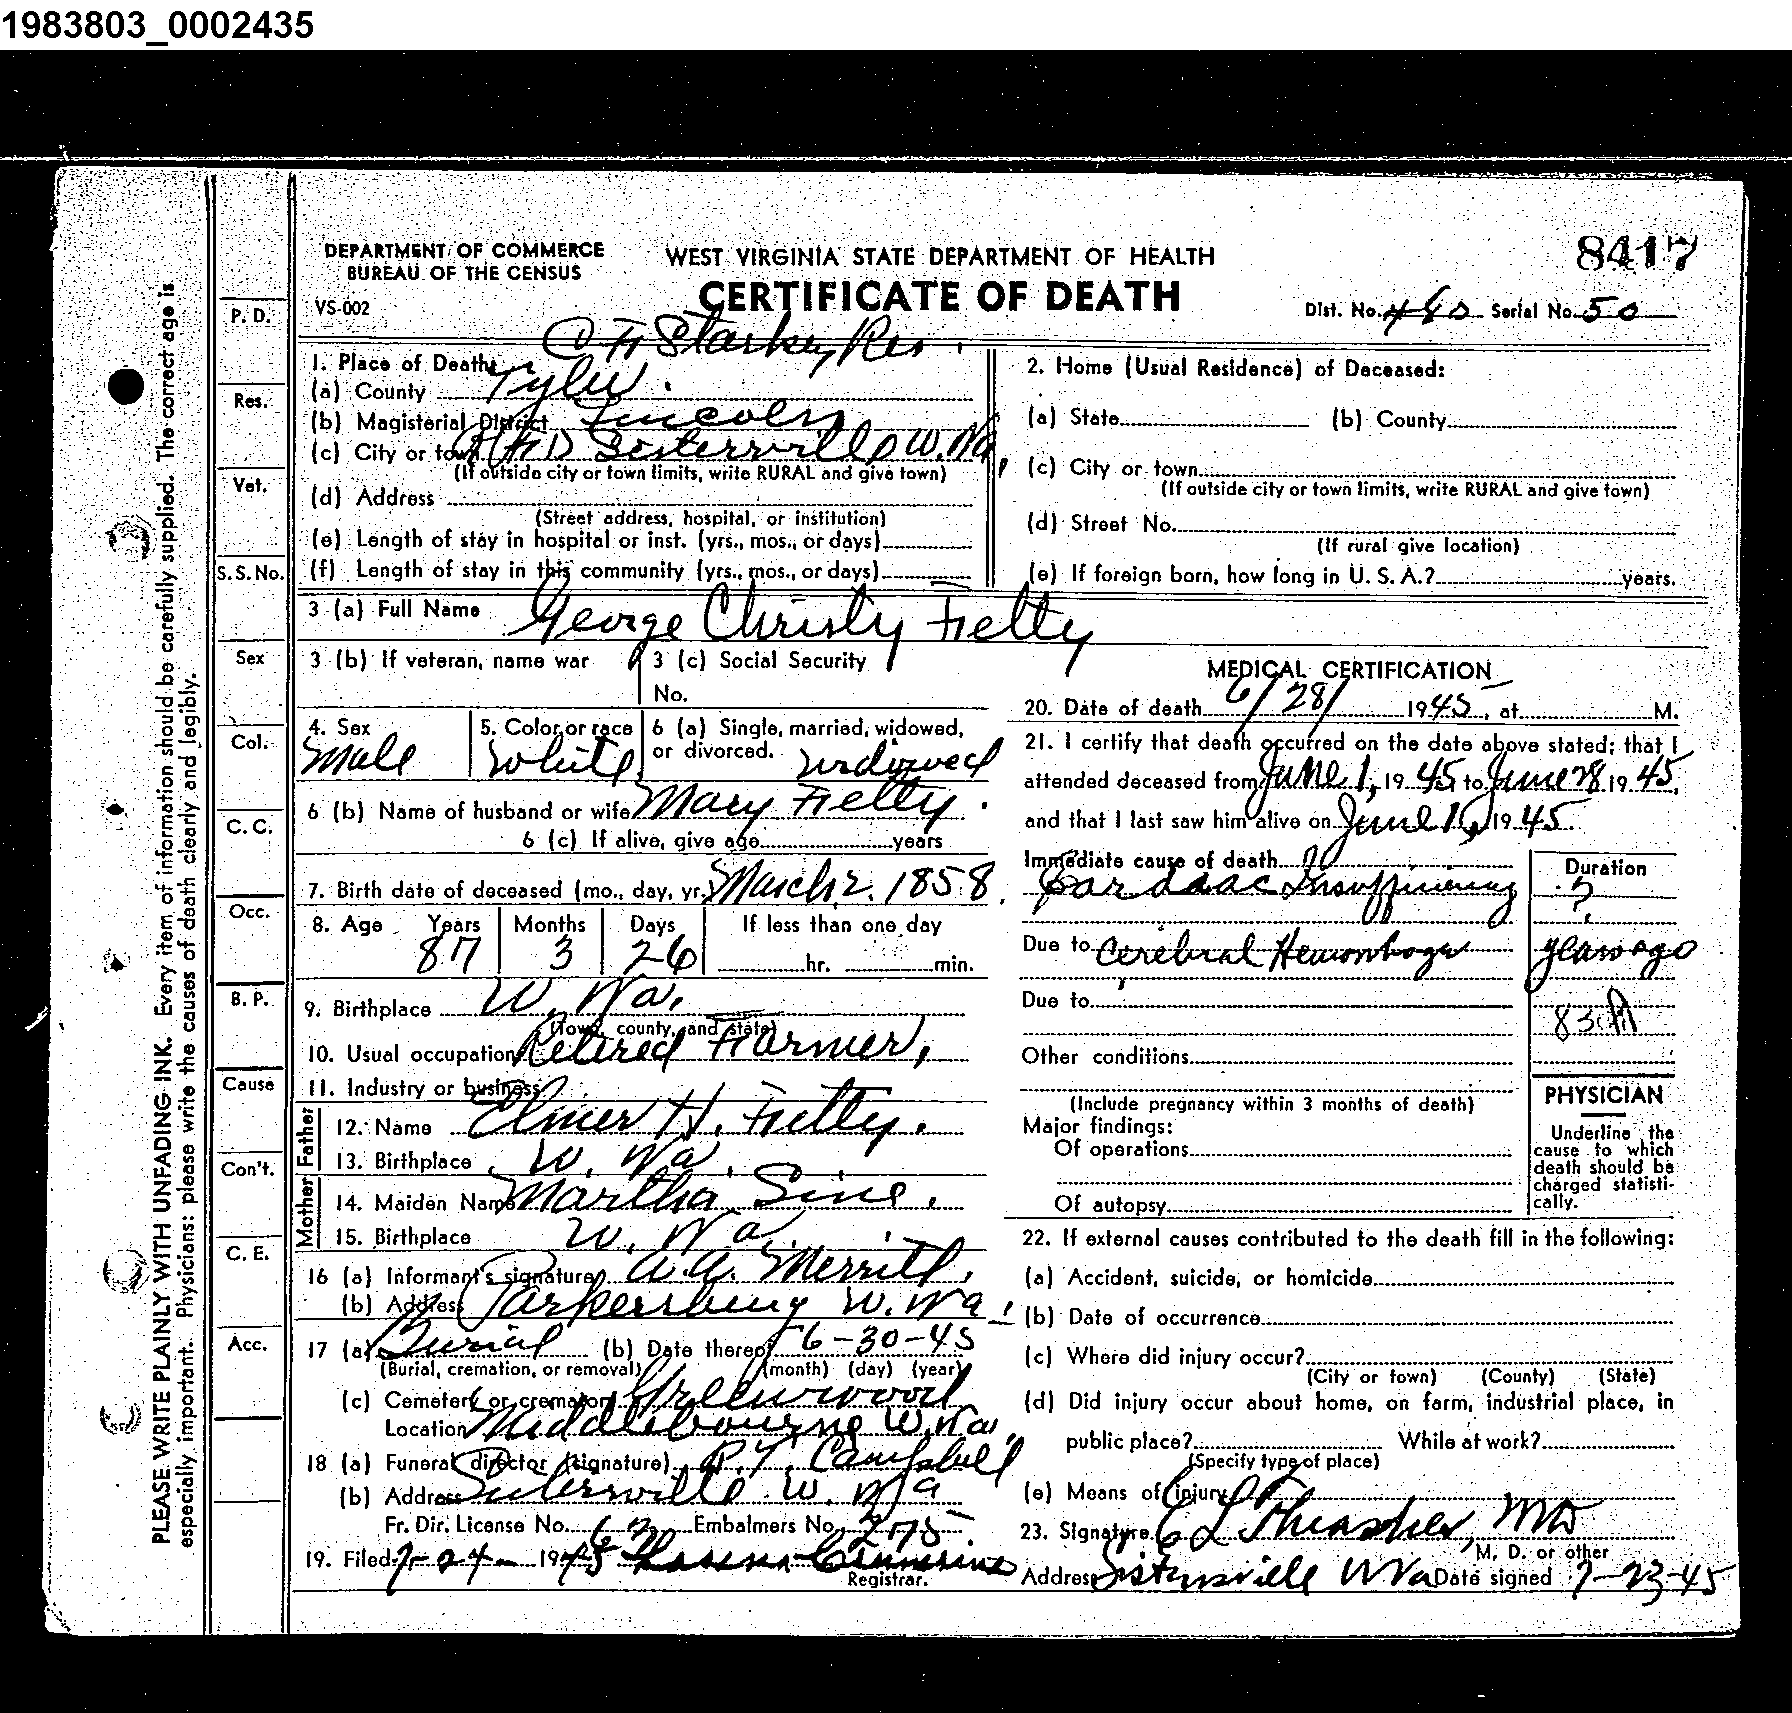 1983803_0002435
8417
DEPARTMENT OF COMMERCE
BUREAU OF THE CENSUS
WEST VIRGINIA STATE DEPARTMENT OF HEALTH
VS-002
CERTIFICATE OF DEATH
Dist. No. 480 Serial No. 50
C F Starkey Res.
1. Place of Death:
(a) County Tyler.
(b) Magisterial District Lincoln
(c) City or town RFD Sistersville W. Va.
(If outside city or town limits, write RURAL and give town)
(d) Address
(Street address, hospital, or institution)
(e) Length of stay in hospital or inst. (yrs., mos., or days)
(f) Length of stay in this community (yrs., mos., or days)
2. Home (Usual Residence) of Deceased:
(a) State (b) County
(c) City or town
(If outside city or town limits, write RURAL and give town)
(d) Street No.
(If rural give location)
(e) If foreign born, how long in U. S. A.? years.
3 (a) Full Name George Christy Fetty
3 (b) If veteran, name war
3 (c) Social Security
No.
4. Sex Male
5. Color or race White
6 (a) Single, married, widowed,
or divorced. widowed
6 (b) Name of husband or wife Mary Fetty.
6 (c) If alive, give age years
7. Birth date of deceased (mo., day, yr.) March 2. 1858.
8. Age Years Months Days If less than one day
87 3 26 hr. min.
9. Birthplace W. Va.
(Town, county, and state)
10. Usual occupation Retired Farmer,
11. Industry or business
Father
12. Name Elmer H. Fetty.
13. Birthplace W. Va.
Mother
14. Maiden Name Martha Sine.
15. Birthplace W. Va.
16 (a) Informant's signature A.A. Merrill.
(b) Address Parkersburg W. Va.
17 (a) Burial (b) Date thereof 6-30-45
(Burial, cremation, or removal) (month) (day) (year)
(c) Cemetery or crematory Greenwood
Location Middlebourne W. Va.
18 (a) Funeral director (signature) R.T. Campbell
(b) Address Sistersville W. Va
Fr. Dir. License No. 63 Embalmers No. 275
19. Filed 7-24- 1945
Registrar.
MEDICAL CERTIFICATION
20. Date of death 6/28/ 1945, at M.
21. I certify that death occurred on the date above stated; that I
attended deceased from June 1, 1945 to June 28 1945,
and that I last saw him alive on June 1945.
Immediate cause of death
Cardiac Insufficiency
Duration
?
Due to Cerebral Hemorrhage years ago
Due to
83a
Other conditions
(Include pregnancy within 3 months of death)
Major findings:
Of operations
Of autopsy
PHYSICIAN
Underline the
cause to which
death should be
charged statisti-
cally.
22. If external causes contributed to the death fill in the following:
(a) Accident, suicide, or homicide
(b) Date of occurrence
(c) Where did injury occur?
(City or town) (County) (State)
(d) Did injury occur about home, on farm, industrial place, in
public place? While at work?
(Specify type of place)
(e) Means of injury
23. Signature C L Thrasher, MD
M. D. or other
Address Sistersville W Va Date signed 7-23-45
P. D.
Res.
Vet.
S. S. No.
Sex
Col.
C. C.
Occ.
B. P.
Cause
Con't.
C. E.
Acc.
PLEASE WRITE PLAINLY WITH UNFADING INK. Every item of information should be carefully supplied. The correct age is
especially important. Physicians: please write the causes of death clearly and legibly.